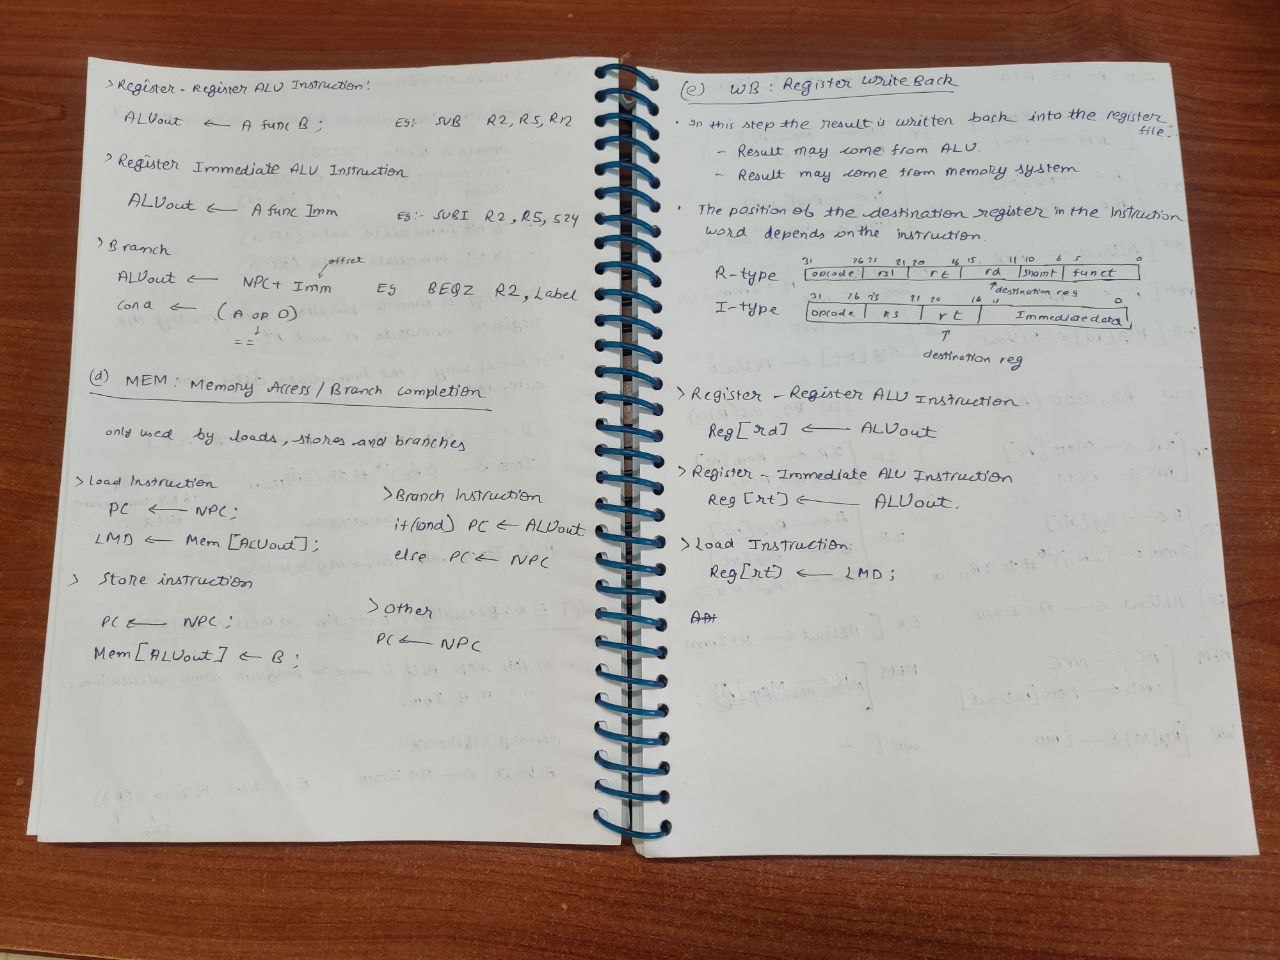 > Register - Register ALU Instruction:
ALUout ← A func B; Eg:- SUB R2, R5, R12
> Register Immediate ALU Instruction
ALUout ← A func Imm Eg:- SUBI R2, R5, 524
> Branch
offset
ALUout ← NPC + Imm Eg BEQZ R2, Label
cond ← (A op 0)
==
(d) MEM: Memory Access / Branch completion
only used by loads, stores and branches
> Load Instruction
PC ← NPC;
LMD ← Mem [ALUout];
> Branch instruction
if (cond) PC ← ALUout
else PC ← NPC
> Store instruction
PC ← NPC;
Mem [ALUout] ← B;
> Other
PC ← NPC
(e) WB: Register Write Back
· In this step the result is written back into the register file.
- Result may come from ALU.
- Result may come from memory system
· The position of the destination register in the instruction
word depends on the instruction.
31 26 25 21 20 16 15 11 10 6 5 0
R-type opcode rs1 rt rd shamt funct
destination reg
31 26 25 21 20 16 15 0
I-type opcode rs rt Immediate data
destination reg
> Register - Register ALU Instruction
Reg [rd] ← ALUout
> Register - Immediate ALU Instruction
Reg [rt] ← ALUout.
> Load Instruction
Reg [rt] ← LMD;